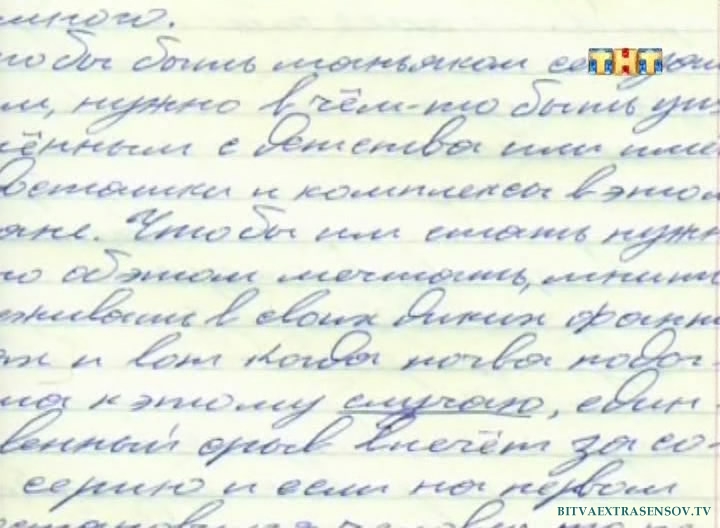 много.
тобы быть маньяком
ТНТ
м, нужно в чём-то быть ущ
ённым с детства или име
достатки и комплексы в этом
ане. Чтобы им стать нужн
о об этом мечтать,
живать в своих диких фант
ах и вот когда почва подог
ла к этому случаю, един
венный срыв влечёт за со-
серию и если на первом
BITVAEXTRASENSOV.TV